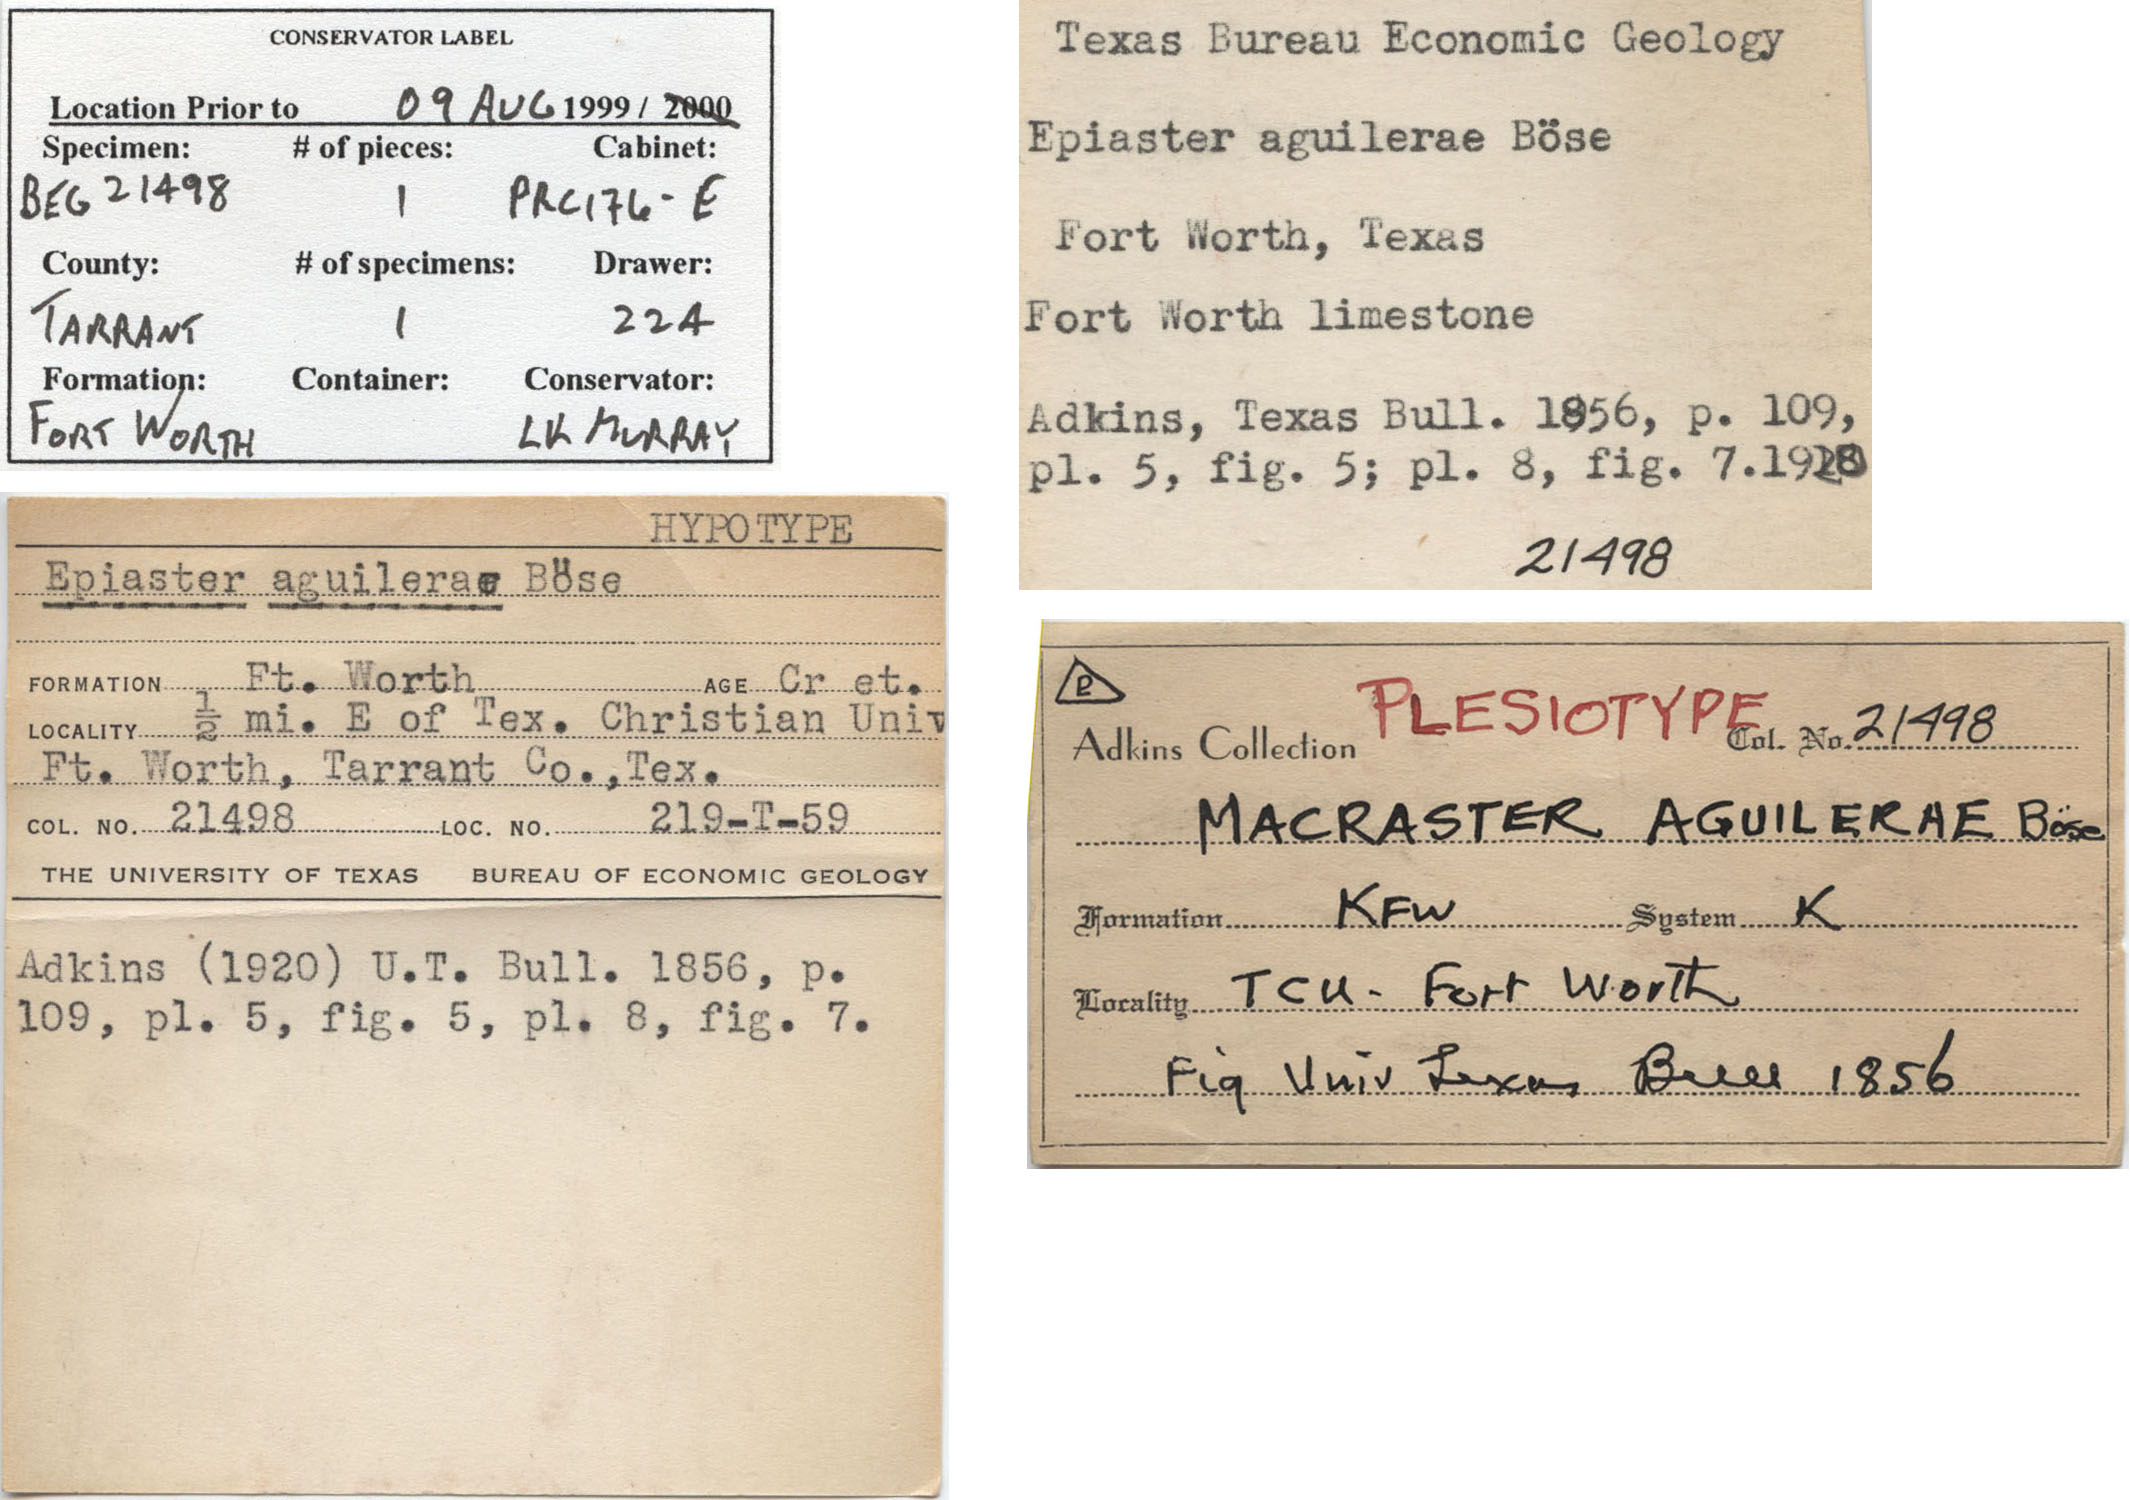 CONSERVATOR LABEL
Location Prior to 09 AUG 1999 / 2000
Specimen: # of pieces: Cabinet:
BEG 21498 1 PRC176-E
County: # of specimens: Drawer:
TARRANT 1 22A
Formation: Container: Conservator:
FORT WORTH LK MURRAY
Texas Bureau Economic Geology
Epiaster aguilerae Böse
Fort Worth, Texas
Fort Worth limestone
Adkins, Texas Bull. 1856, p. 109,
pl. 5, fig. 5; pl. 8, fig. 7.
21498
HYPOTYPE
Epiaster aguilerae Böse
FORMATION Ft. Worth AGE Cret.
LOCALITY 1/2 mi. E of Tex. Christian Univ
Ft. Worth, Tarrant Co., Tex.
COL. NO. 21498 LOC. NO. 219-T-59
THE UNIVERSITY OF TEXAS BUREAU OF ECONOMIC GEOLOGY
Adkins (1920) U.T. Bull. 1856, p.
109, pl. 5, fig. 5, pl. 8, fig. 7.
PLESIOTYPE
Adkins Collection Col. No. 21498
MACRASTER AGUILERAE Böse
Formation KFW System K
Locality TCU - Fort Worth
Fig Univ Texas Bull 1856